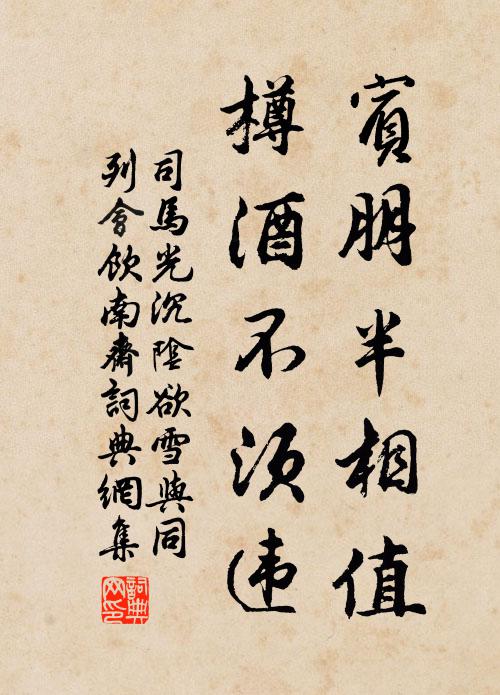 賓朋半相值
樽酒不须违
司馬光沉陰欲雪與同
列會飲南齋詞典網集
詞典网印